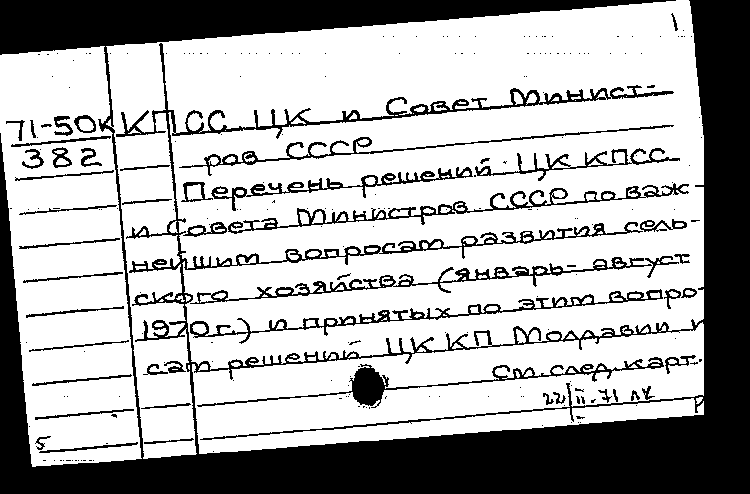 1
71-50К КПСС. ЦК и Совет Минист-
382 ров СССР
Перечень решений ЦК КПСС
и Совета Министров СССР по важ-
нейшим вопросам развития сель-
ского хозяйства (январь-август
1970г.) и принятых по этим вопро-
сам решений ЦК КП Молдавии и
См. след. карт.
22/II-71
5 Р